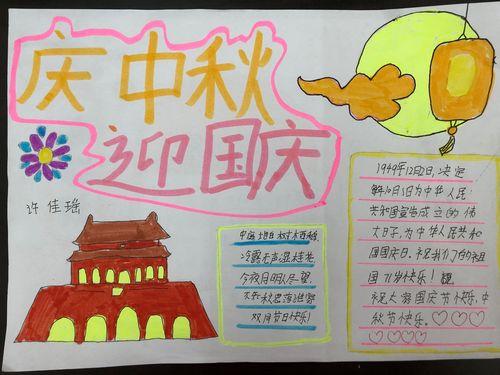 庆中秋
迎国庆
许佳瑶
中庭地白树栖鸦,
冷露无声湿桂花,
今夜月明人尽望,
不知秋思落谁家
双月节日快乐!
1949年12月2日,决定
每年10月1日为中华人民
共和国宣告成立的伟
大日子,为中华人民共和
国国庆日。祝我们了的祖
国71岁快乐!
祝大家国庆节快乐,中
秋节快乐。